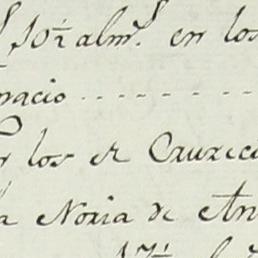 10½ alm.s en los
nacio
los el Cruce
la Noria de An
17½